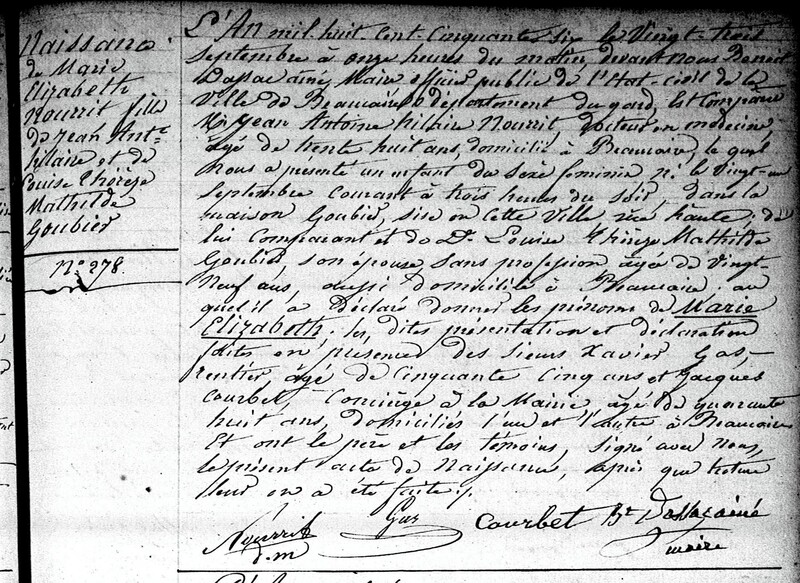 Naissance
de Marie
Elizabeth
Nourrit fille
de Jean Ant.ne
hilaire et de
Louise thérèze
Mathilde
Goubier
N.o 278.
L'An mil huit cent cinquante six le vingt-trois
septembre à onze heures du matin, devant nous Benoit
ainé Maire officier public de l'Etat-civil de la
Ville de Beaucaire Département du gard, Est comparu
M. Jean Antoine hilaire Nourrit docteur en médecine,
âgé de trente huit ans, domicilié à Beaucaire, le quel
nous a présenté un enfant du sexe feminin né le vingt-un
septembre courant à trois heures du soir, dans la
maison Goubier sise en cette Ville rue haute; de
lui comparant et de De. Louise thérèze Mathilde
Goubier, son épouse sans profession âgée de vingt-
neuf ans, aussi domiciliée à Beaucaire; au
quel il a déclaré donner les prénoms de Marie
Elizabeth; les dites présentation et déclaration
faites en présence des sieurs Xavier Gas,
rentier âgé de cinquante cinq ans et Jacques
Courbet Concierge à la Mairie, âgé de quarante
huit ans, domiciliés l'un et l'autre à Beaucaire
Et ont le père et les témoins, signé avec nous,
le présent acte de Naissance, après que lecture
leur en a été faite.
Nourrit Gas Courbet Bt
d.m maire